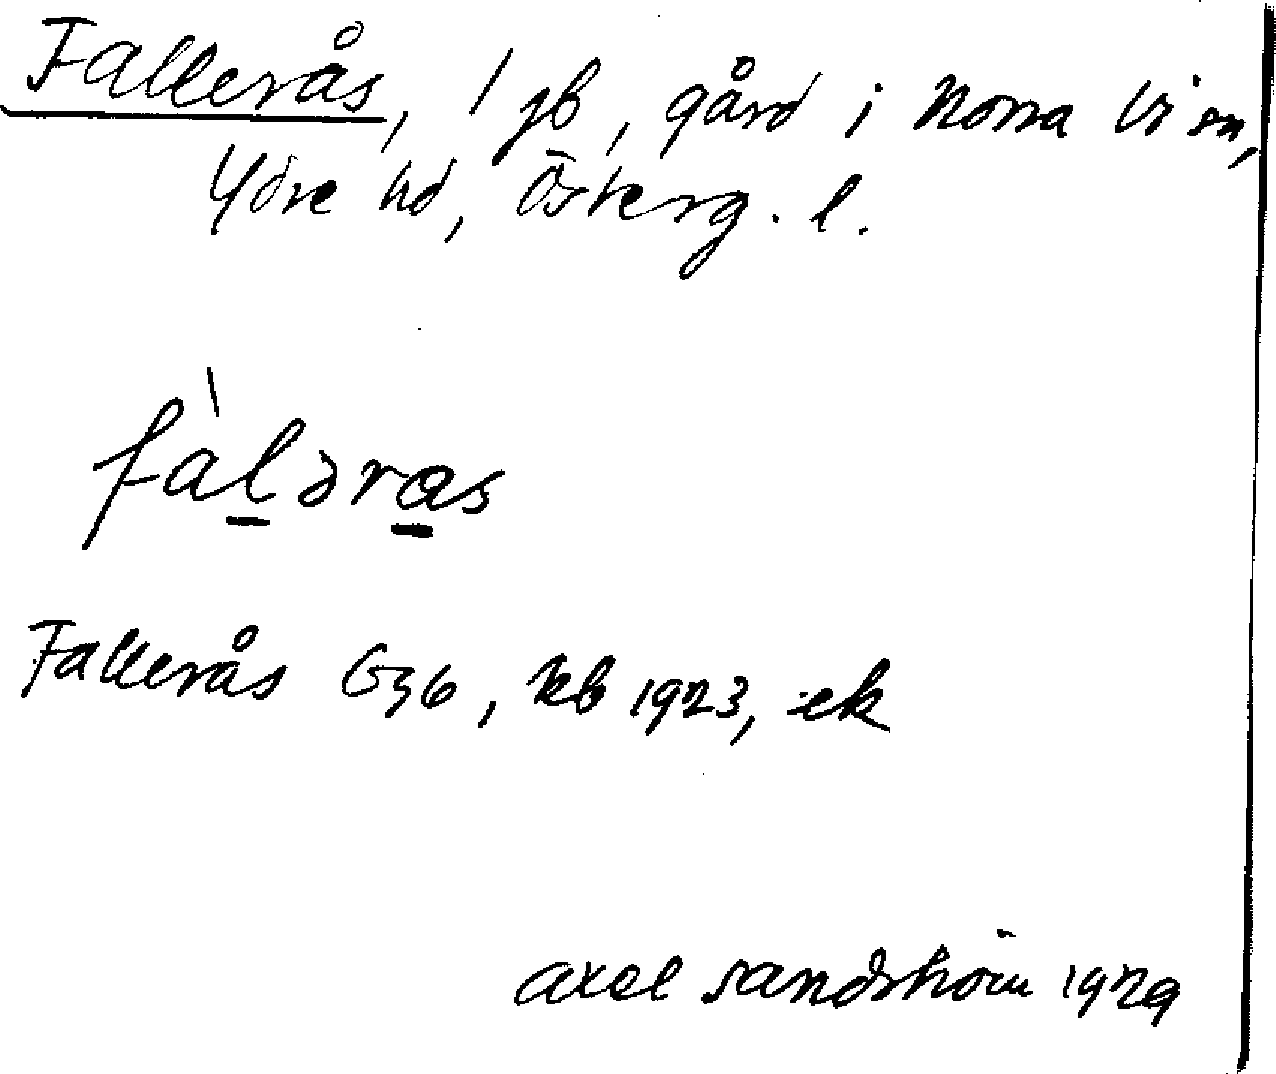 Fallerås, 1 jb, gård i Norra Vi sn,
Ydre hd, Österg. l.
fàl̠əra̠s
Fallerås G36, kb 1923, ek
Axel Sandström 1929